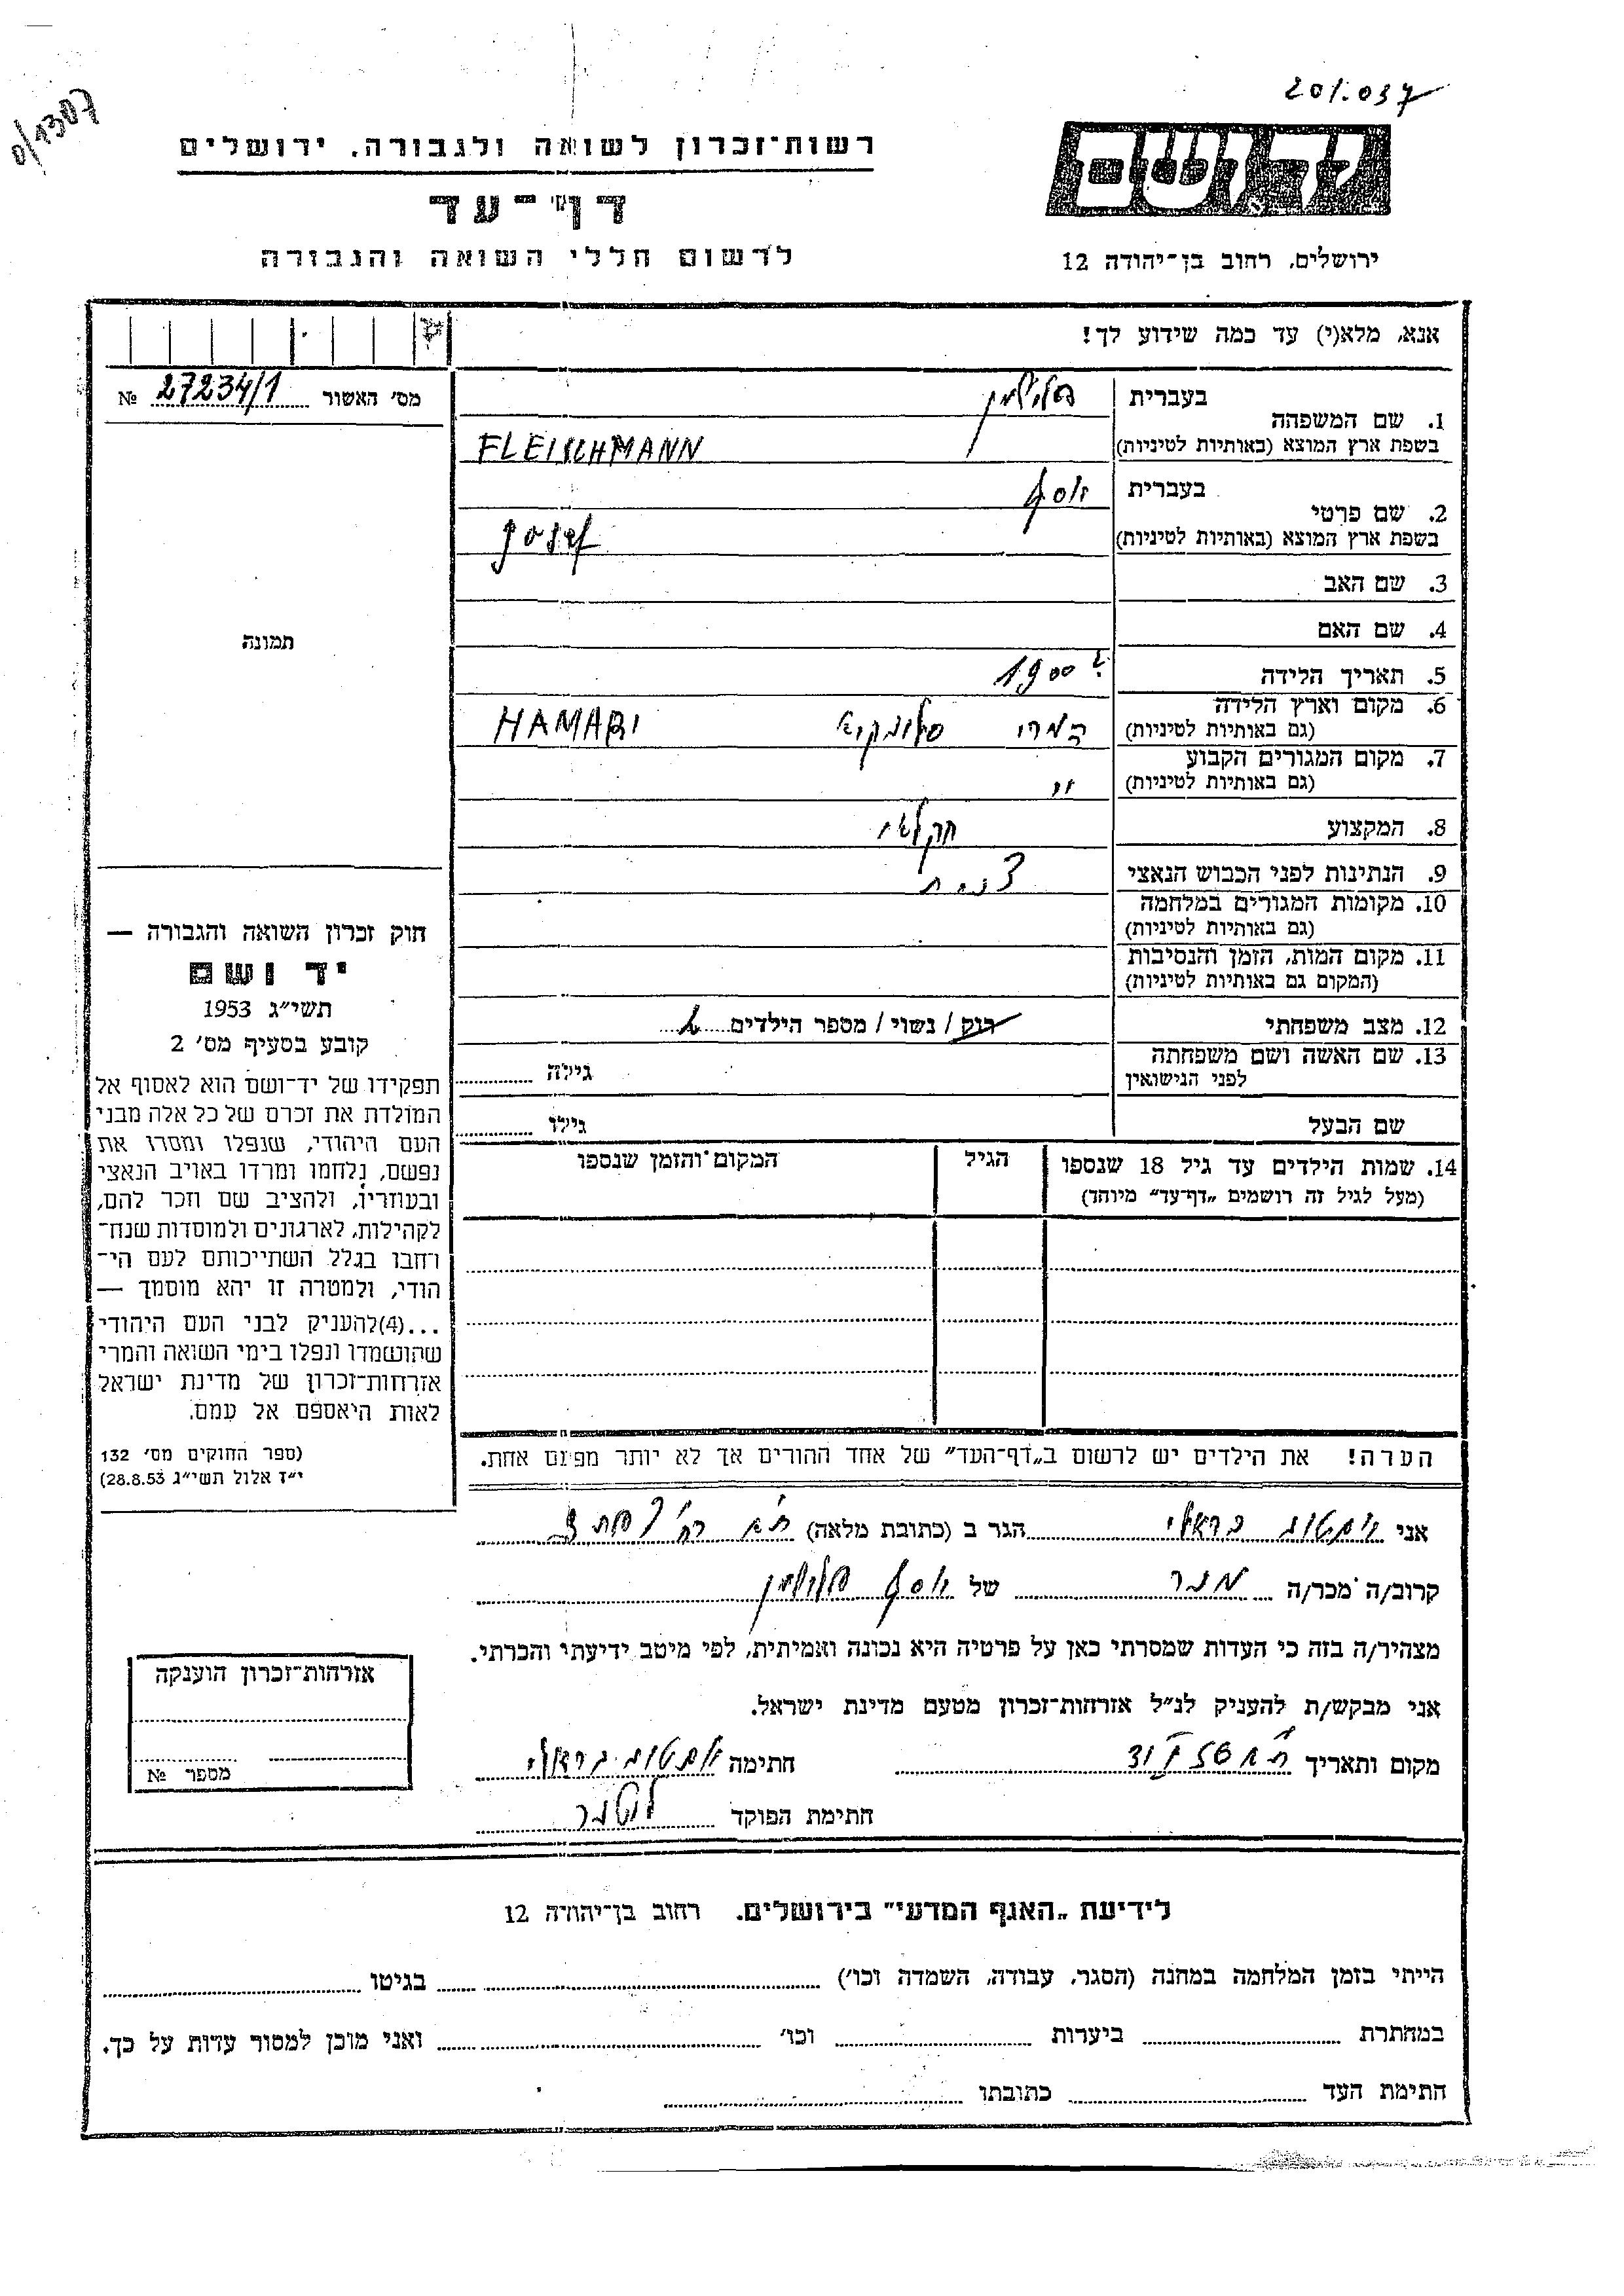 201.037
0/1307
יד ושם
רשות־זכרון לשואה ולגבורה, ירושלים
דף־עד
לרשום חללי השואה והגבורה
ירושלים, רחוב בן־יהודה 12
אנא, מלא(י) עד כמה שידוע לך!
מס׳ האשור 27234/1 №
תמונה
1. שם המשפחה
בעברית פליישמן
בשפת ארץ המוצא (באותיות לטיניות) FLEISCHMANN
2. שם פרטי
בעברית יוסף
בשפת ארץ המוצא (באותיות לטיניות) Josef
3. שם האב
4. שם האם
5. תאריך הלידה 1900
6. מקום וארץ הלידה
(גם באותיות לטיניות) HAMARI
7. מקום המגורים הקבוע
(גם באותיות לטיניות) "
8. המקצוע חקלאי
9. הנתינות לפני הכבוש הנאצי
10. מקומות המגורים במלחמה
(גם באותיות לטיניות)
11. מקום המות, הזמן והנסיבות
(המקום גם באותיות לטיניות)
12. מצב משפחתי רווק / נשוי / מספר הילדים
13. שם האשה ושם משפחתה
לפני הנישואין גילה
שם הבעל גילו
14. שמות הילדים עד גיל 18 שנספו הגיל המקום והזמן שנספו
(מעל לגיל זה רושמים „דף־עד" מיוחד)
הערה! את הילדים יש לרשום ב„דף־העד" של אחד ההורים אך לא יותר מפעם אחת.
חוק זכרון השואה והגבורה —
יד ושם
תשי״ג 1953
קובע בסעיף מס׳ 2
תפקידו של יד־ושם הוא לאסוף אל
המולדת את זכרם של כל אלה מבני
העם היהודי, שנפלו ומסרו את
נפשם, נלחמו ומרדו באויב הנאצי
ובעוזריו, ולהציב שם וזכר להם,
לקהילות, לארגונים ולמוסדות שנח־
רחבו בגלל השתייכותם לעם הי־
הודי, ולמטרה זו יהא מוסמך —
...(4)להעניק לבני העם היהודי
שהושמדו ונפלו בימי השואה והמרי
אזרחות־זכרון של מדינת ישראל
לאות היאספם אל עמם.
(ספר החוקים מס׳ 132
י״ז אלול תשי״ג 28.8.53)
אני הגר ב (כתובת מלאה)
קרוב/ה מכר/ה של יוסף פליישמן
מצהיר/ה בזה כי העדות שמסרתי כאן על פרטיה היא נכונה ואמיתית, לפי מיטב ידיעתי והכרתי.
אני מבקש/ת להעניק לנ״ל אזרחות־זכרון מטעם מדינת ישראל.
מקום ותאריך חתימה
חתימת הפוקד
אזרחות־זכרון הוענקה
מספר №
לידיעת „האגף המדעי" בירושלים, רחוב בן־יהודה 12
הייתי בזמן המלחמה במחנה (הסגר, עבודה, השמדה וכו׳) בגיטו
במחתרת ביערות וכו׳ ואני מוכן למסור עדות על כך.
חתימת העד כתובתו